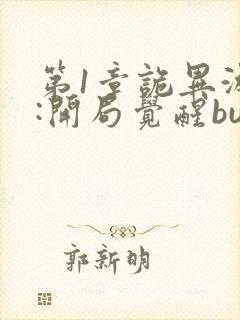 第1章詭異
:開局覺醒bu
郭新明